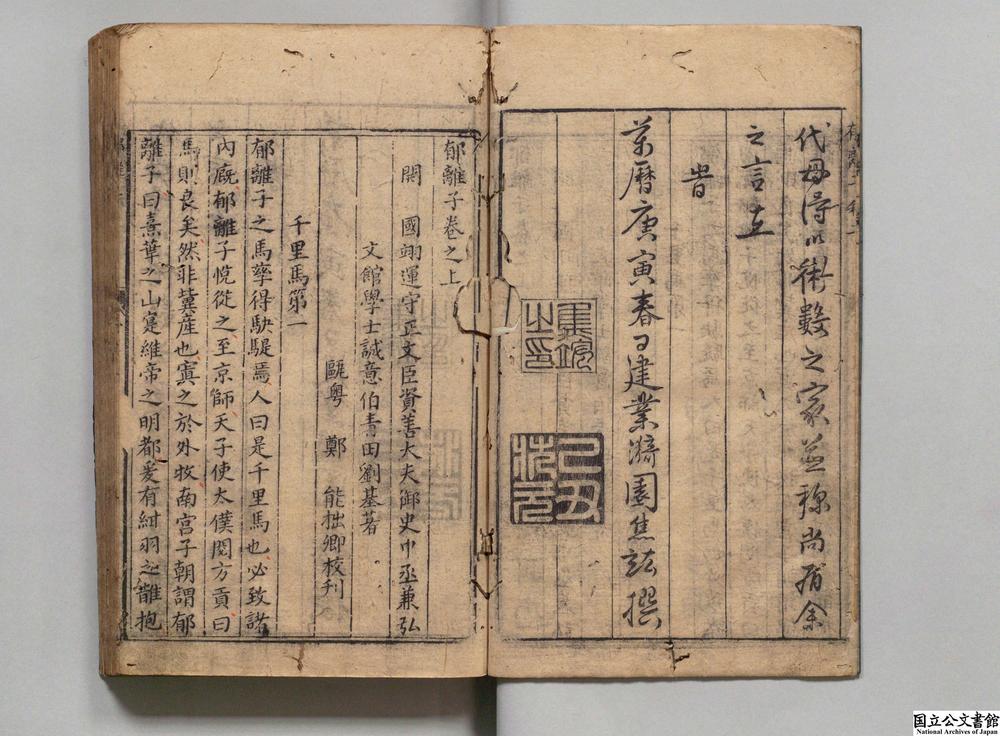 代毋得以術數之家並稱尚有余
之言在
旹
萬曆庚寅春日建業漪園焦竑撰
己丑
狀元
郁離子卷之上
開國翊運守正文臣資善大夫御史中丞兼弘
文館學士誠意伯青田劉基著
甌粤 鄭 能拙卿校刋
千里馬第一
郁離子之馬孳得駃騠焉人曰是千里馬也必致諸
內廐郁離子悅從之至京師天子使太僕閱方貢曰
馬則良矣然非冀產也寘之於外牧南宮子朝謂郁
離子曰熹華之山寔維帝之明都爰有紺羽之鵲抱
国立公文書館
National Archives of Japan